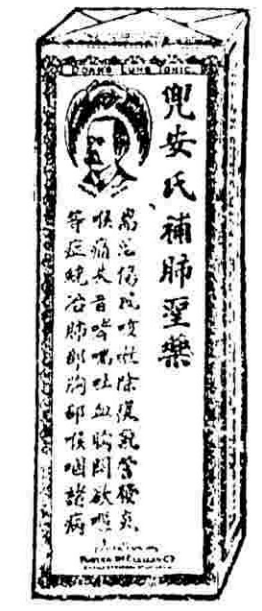 DOANS LUNG TONIC.
兜安氏補肺聖藥
治傷風咳嗽除痰氣管發炎
喉痛失音哮喘吐血胸悶欲嘔
等症統治肺部胸部喉咽諸病
FOSTER McCLELLAN Co